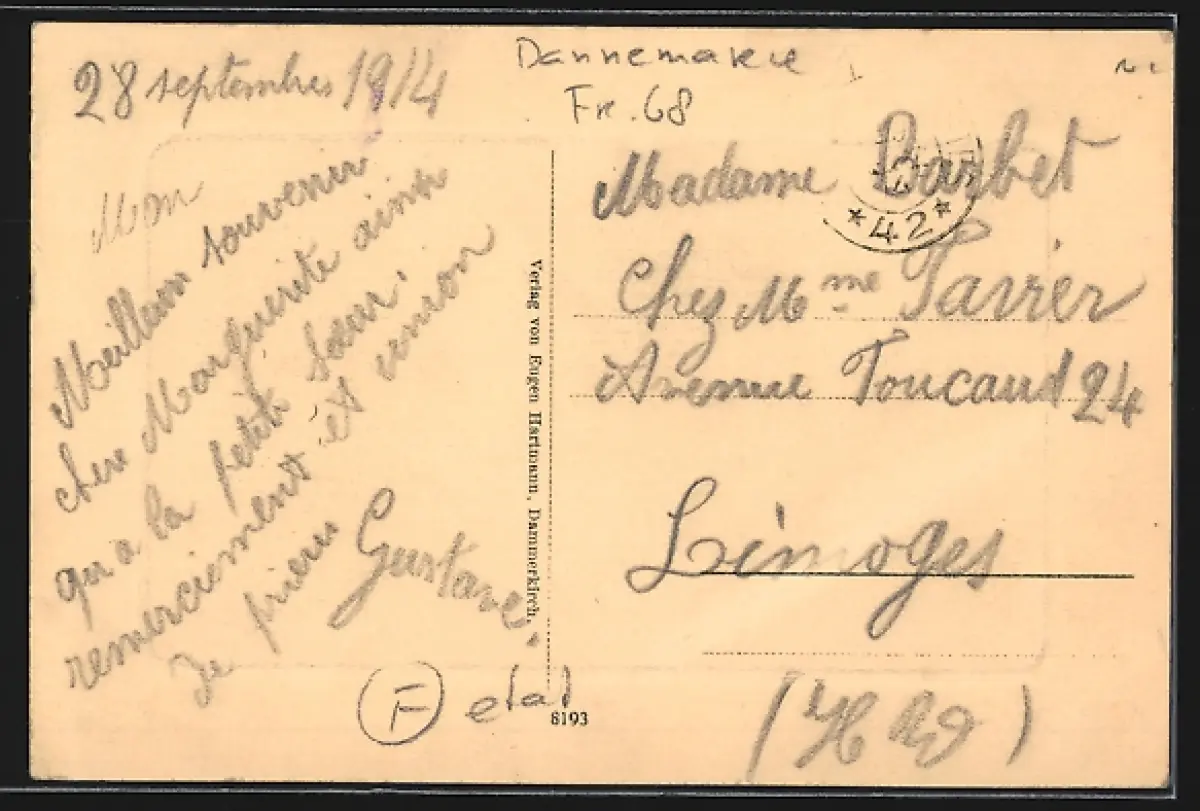 28 septembre 1914
Dannemarie
Fr. 68
Mon
Meilleur souvenir
chere Marguerite ainsi
qu'a la petite Sœur.
remerciment et union
de prieres
Gustave.
Verlag von Eugen Hartmann, Dammerkirch.
Madame Barbet
Chez Mme Tavier
Avenue Foucaud 24
Limoges
(H Vve)
* 42 *
F etat
8193